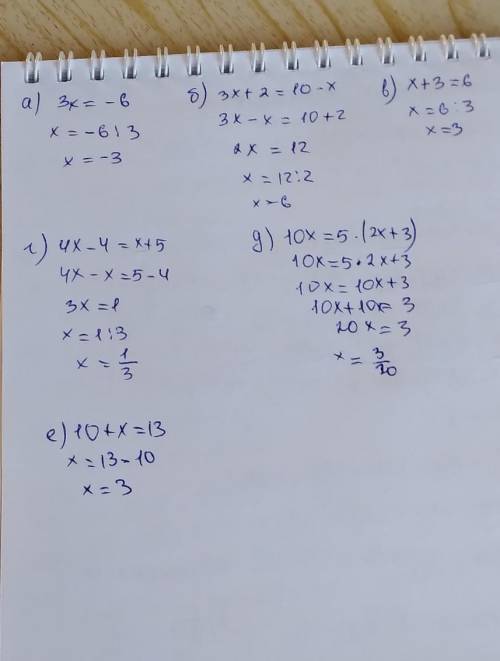 а) 3x = -6
x = -6 : 3
x = -3
б) 3x + 2 = 10 - x
3x - x = 10 + 2
2x = 12
x = 12 : 2
x = 6
в) x + 3 = 6
x = 6 : 3
x = 3
г) 4x - 4 = x + 5
4x - x = 5 - 4
3x = 1
x = 1 : 3
x = 1/3
д) 10x = 5 · (2x + 3)
10x = 5 · 2x + 3
10x = 10x + 3
10x + 10x = 3
20x = 3
x = 3/20
е) 10 + x = 13
x = 13 - 10
x = 3